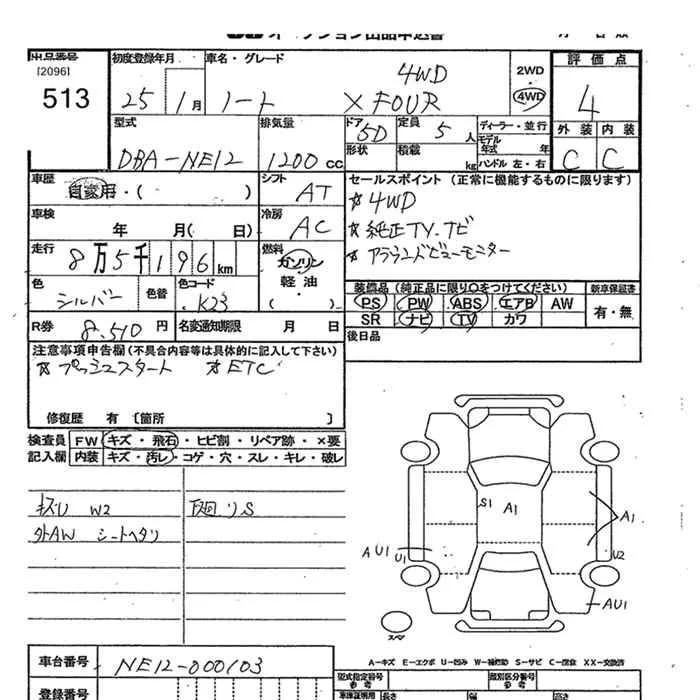 オークション出品申込書
出品番号 初度登録年月 車名・グレード 評価点
[2096] 4WD 2WD
513 25 1月 ノート X FOUR 4WD 4
型式 排気量 ドア 5D 定員 5人 ディーラー・並行 外装 内装
モデル年式 年
DBA-NE12 1200cc 形状 積載 kg ハンドル 左・右 C C
車歴 シフト セールスポイント (正常に機能するものに限ります)
自家用・( ) AT ☆4WD
車検 冷房 ☆純正TV.ナビ
年 月( 日) AC ☆アラウンドビューモニター
走行 燃料
8万5千196km ガソリン
軽・油
( )
色 色替 色コード 装備品 (純正品に限り○をつけてください) 新車保証書
シルバー K23 PS PW ABS エアB AW 有・無
SR ナビ TV カワ
R券 8,510円 名変通知期限 月 日 後日品
注意事項申告欄(不具合内容等は具体的に記入して下さい)
☆プッシュスタート ☆ETC
修復歴 有 〔箇所 〕
検査員 FW キズ・飛石・ヒビ割・リペア跡・×要
記入欄 内装 キズ・汚レ・コゲ・穴・スレ・キレ・破レ
キズU W2 下廻リS
外AW シートヘタリ
S1 A1 A1
AU1 U1 U2
AU1
スペア
A-キズ E-エクボ U-凹み W-補修跡 S-サビ C-腐食 XX-交換済
車台番号 NE12-000103
型式指定番号 参考 類別区分番号 参考
登録番号 車庫証明用 長さ 幅 高さ